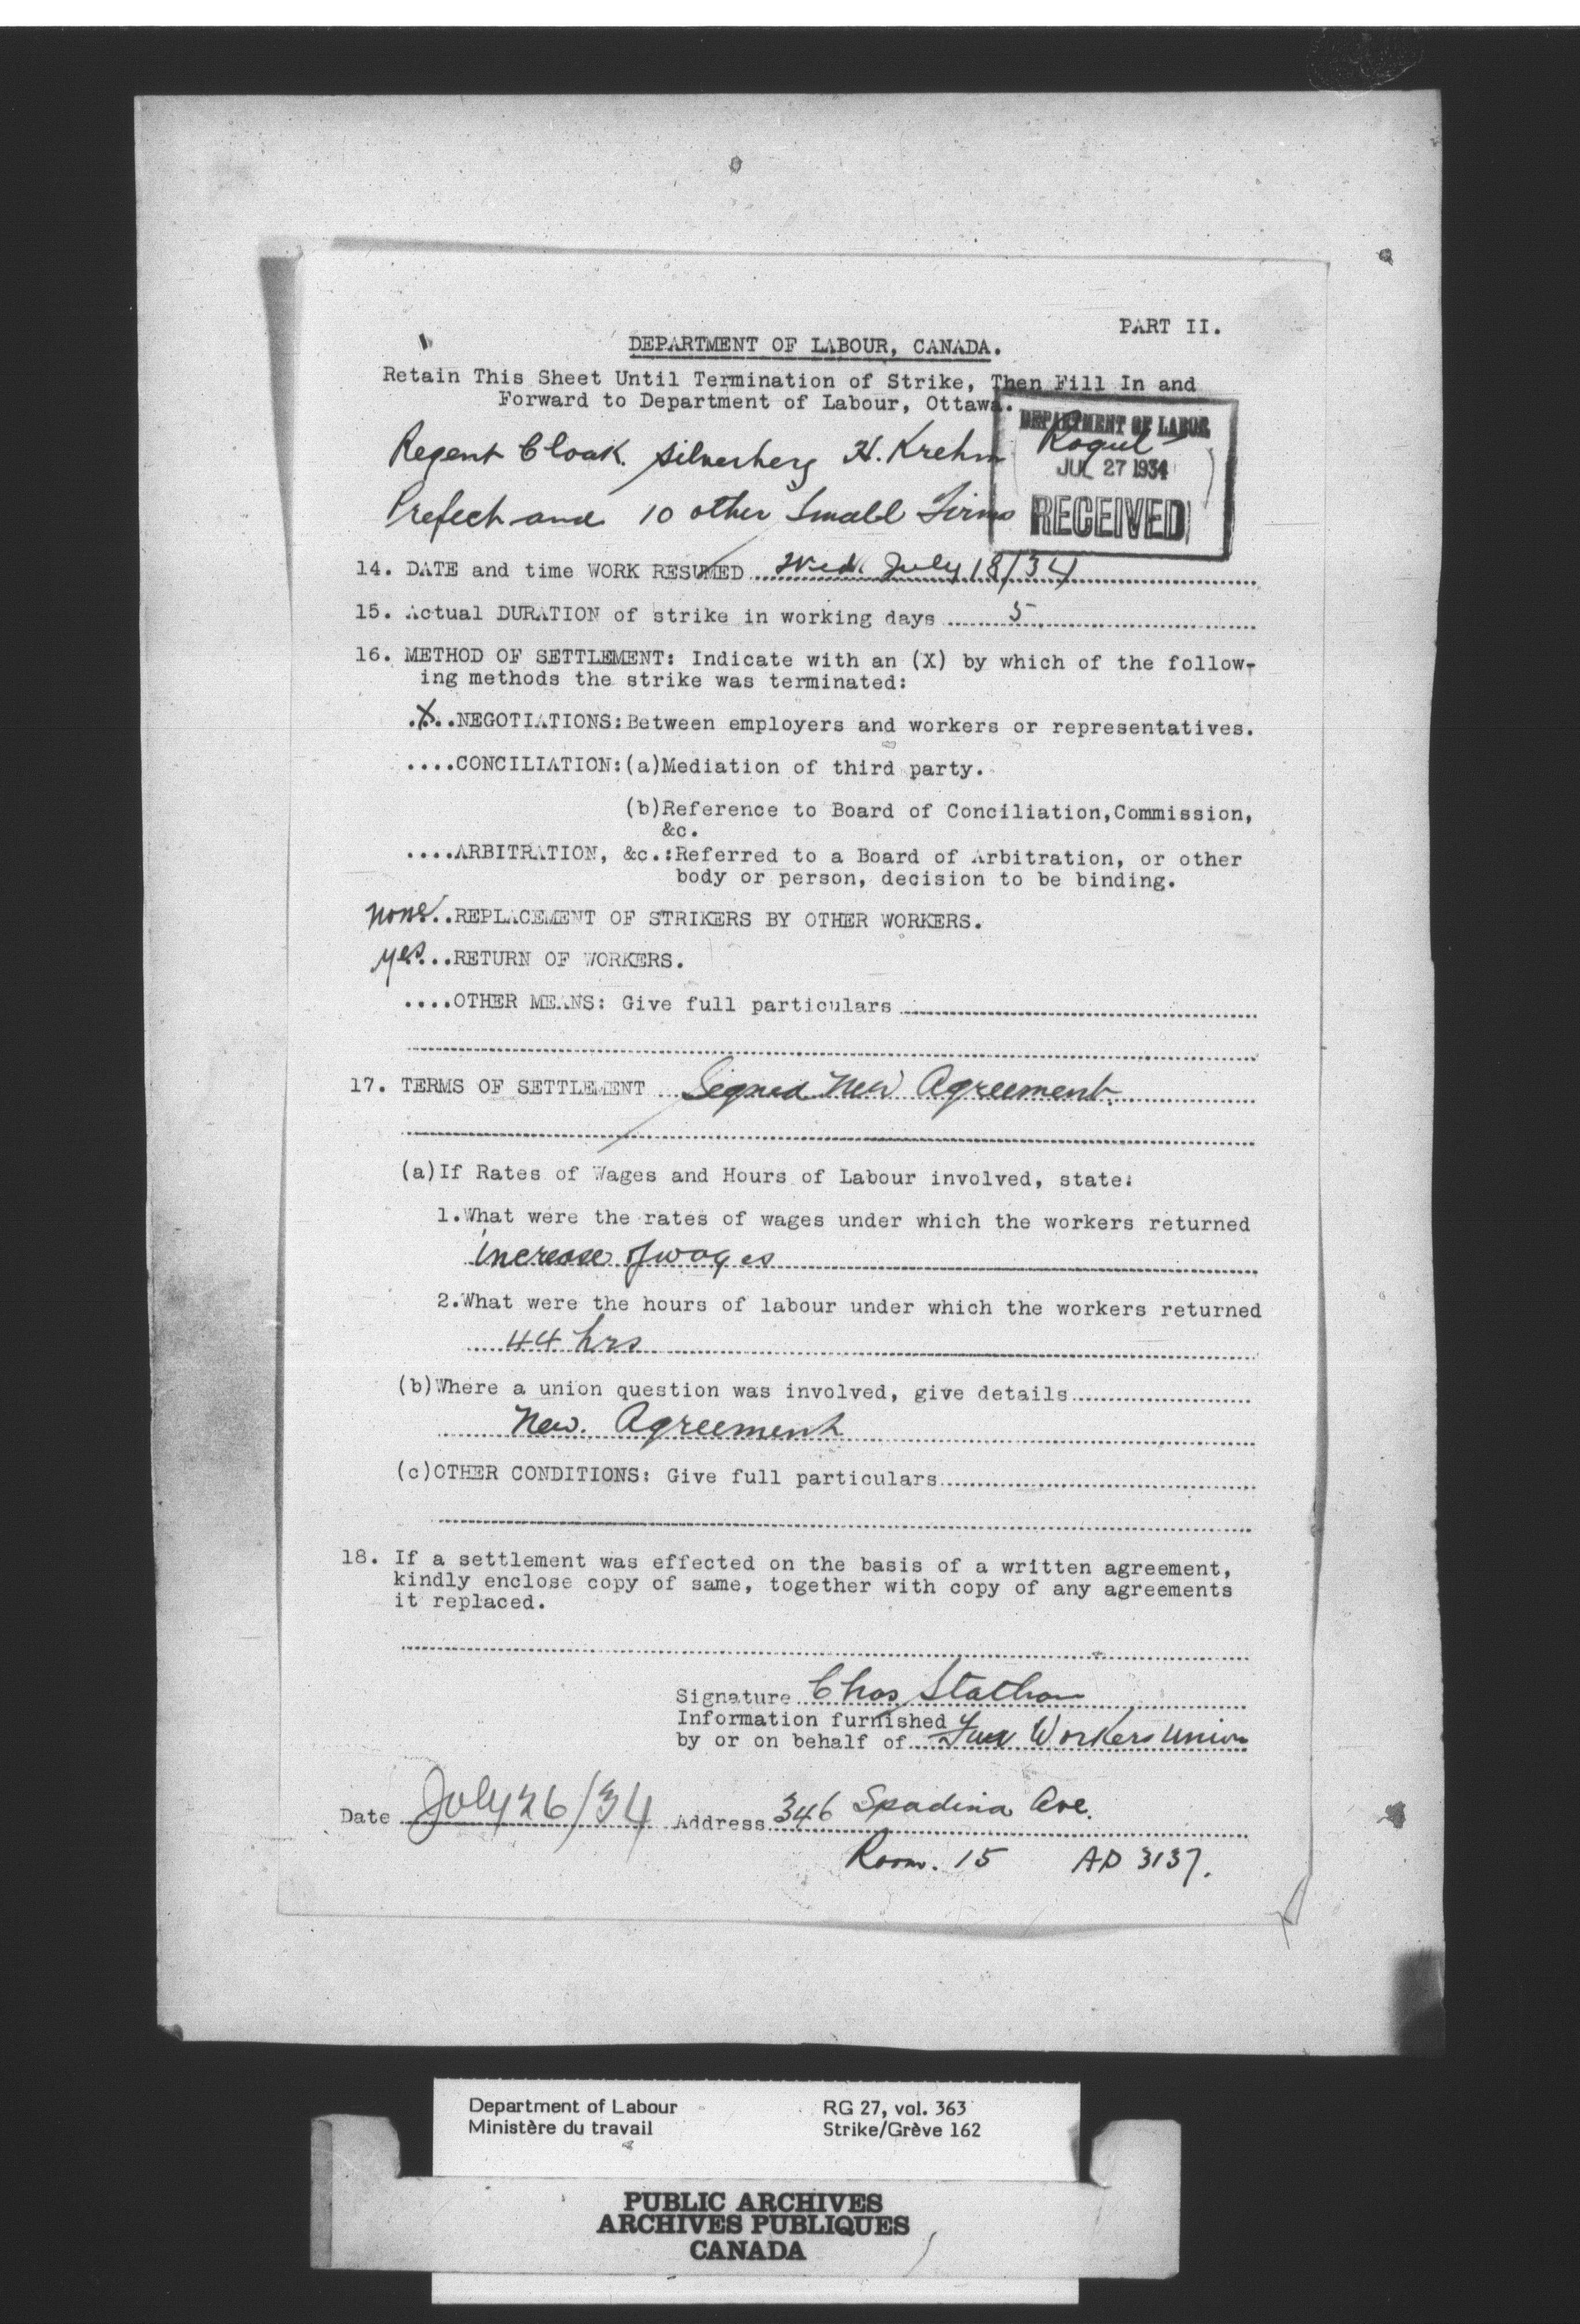 PART II.
DEPARTMENT OF LABOUR, CANADA.
Retain This Sheet Until Termination of Strike, Then Fill In and
Forward to Department of Labour, Ottawa.
DEPARTMENT OF LABOR
JUL 27 1934
RECEIVED
Regent Cloak. Silverberg H. Krehm
Prefect and 10 other Small Firms
14. DATE and time WORK RESUMED Wed. July 18/34
15. Actual DURATION of strike in working days 5
16. METHOD OF SETTLEMENT: Indicate with an (X) by which of the follow-
ing methods the strike was terminated:
.X..NEGOTIATIONS:Between employers and workers or representatives.
....CONCILIATION:(a)Mediation of third party.
(b)Reference to Board of Conciliation,Commission,
&c.
....ARBITRATION, &c.:Referred to a Board of Arbitration, or other
body or person, decision to be binding.
none..REPLACEMENT OF STRIKERS BY OTHER WORKERS.
yes...RETURN OF WORKERS.
....OTHER MEANS: Give full particulars
17. TERMS OF SETTLEMENT Signed New Agreement.
(a)If Rates of Wages and Hours of Labour involved, state:
1.What were the rates of wages under which the workers returned
increase of wages
2.What were the hours of labour under which the workers returned
44 hrs
(b)Where a union question was involved, give details
New. Agreement
(c)OTHER CONDITIONS: Give full particulars
18. If a settlement was effected on the basis of a written agreement,
kindly enclose copy of same, together with copy of any agreements
it replaced.
Signature Chas Statham
Information furnished
by or on behalf of Fur Workers Union
Date July 26/34 Address 346 Spadina Ave.
Room. 15 AD 3137.
Department of Labour RG 27, vol. 363
Ministère du travail Strike/Grève 162
PUBLIC ARCHIVES
ARCHIVES PUBLIQUES
CANADA